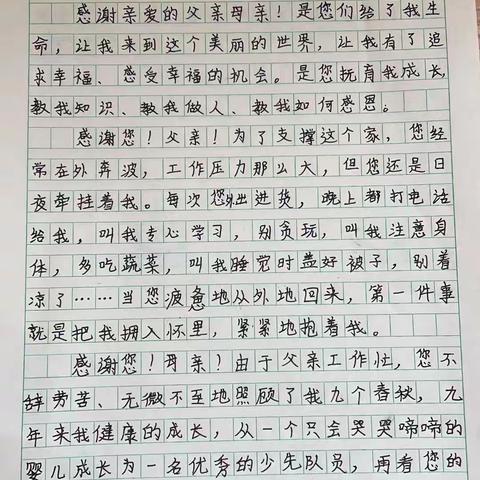 感谢亲爱的父亲母亲！是您们给了我生
命，让我来到这个美丽的世界，让我有了追
求幸福、感受幸福的机会。是您抚育我成长，
教我知识、教我做人、教我如何感恩。
感谢您！父亲！为了支撑这个家，您经
常在外奔波，工作压力那么大，但您还是日
夜牵挂着我。每次您外出进货，晚上都打电话
给我，叫我专心学习，别贪玩，叫我注意身
体，多吃蔬菜，叫我睡觉时盖好被子，别着
凉了……当您疲惫地从外地回来，第一件事
就是把我拥入怀里，紧紧地抱着我。
感谢您！母亲！由于父亲工作忙，您不
辞劳苦、无微不至地照顾了我九个春秋，九
年来我健康的成长，从一个只会哭哭啼啼的
婴儿成长为一名优秀的少先队员，再看您的